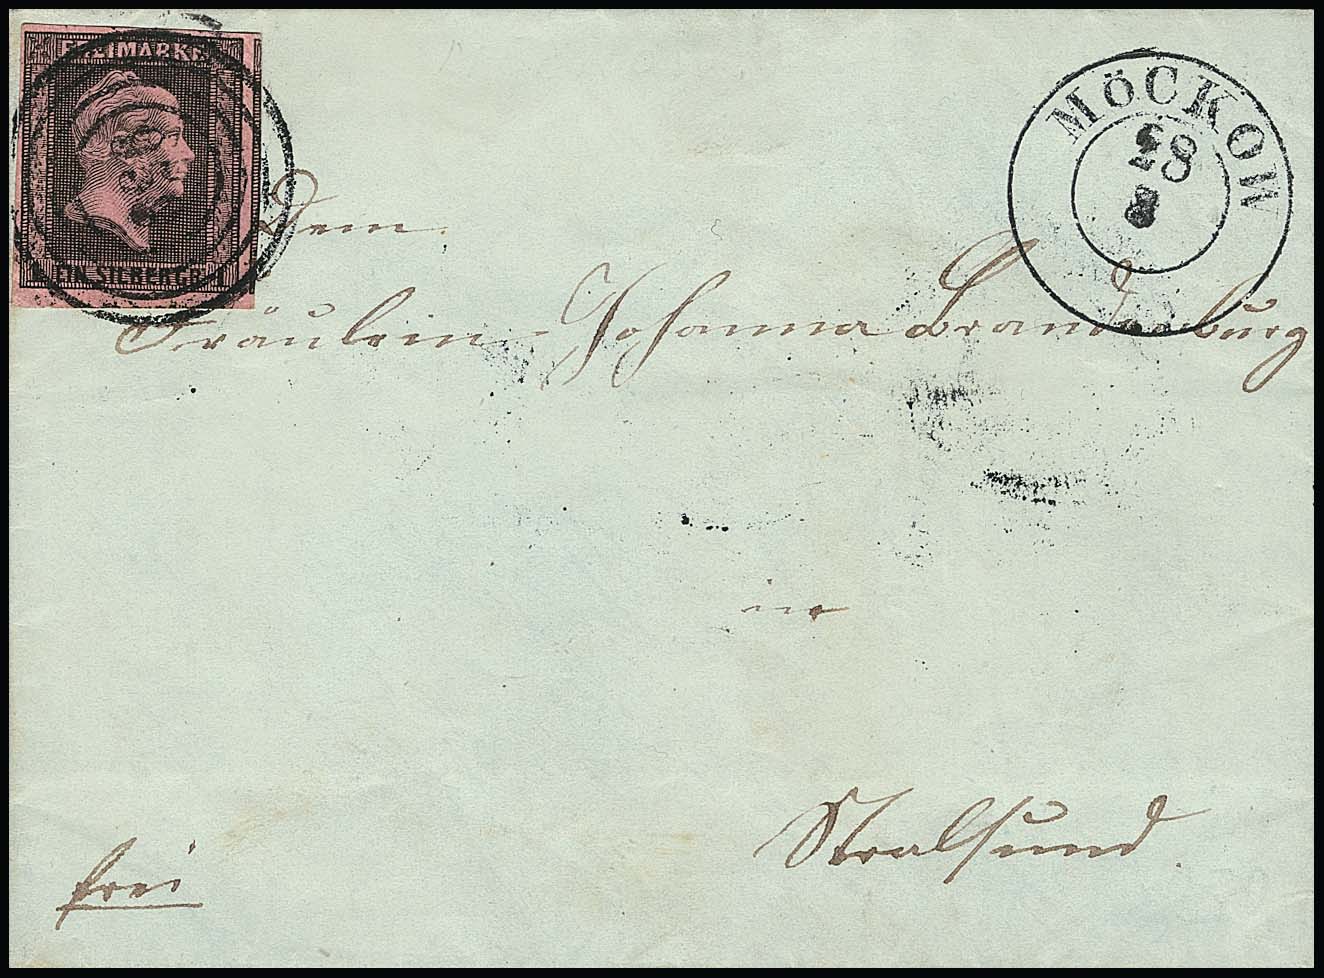 FREIMARKE
EIN SILBERGR.
MÖCKOW
28
8
Dem
Fräulein Johanna Brandenburg
in
Stralsund.
frei